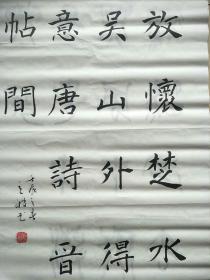 放懷楚水
吳山外得
意唐詩晉
帖間